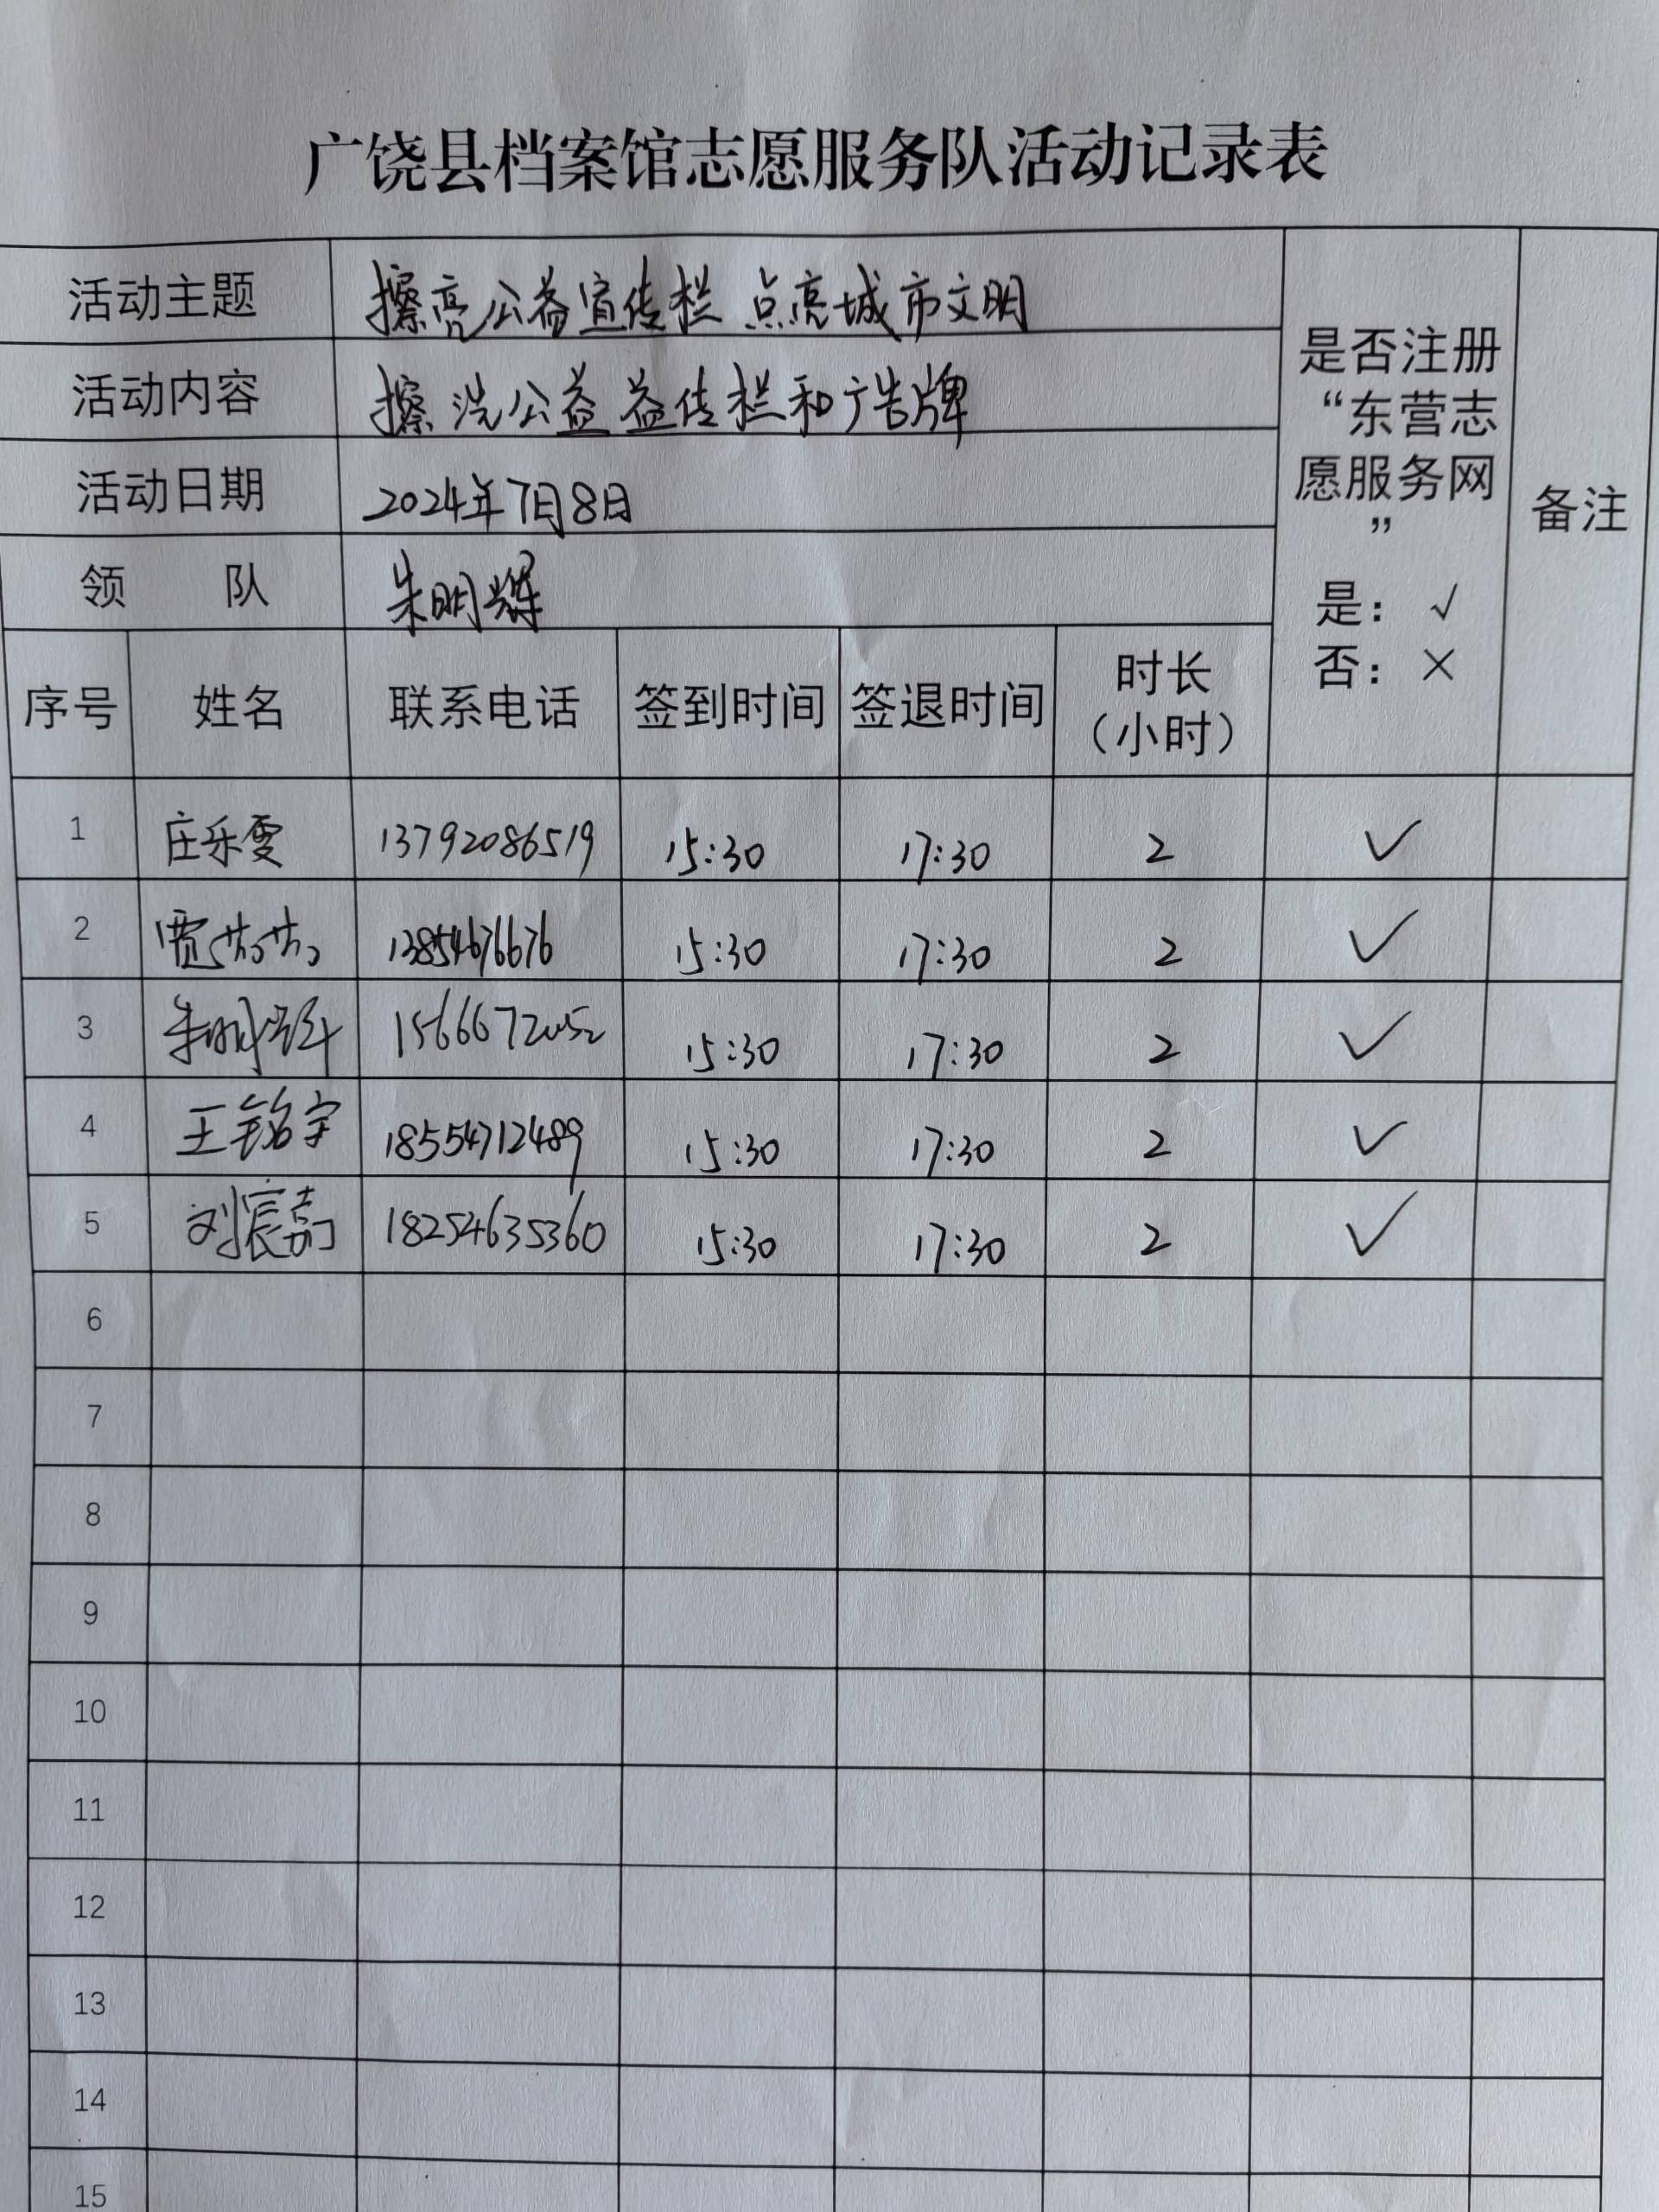 广饶县档案馆志愿服务队活动记录表
活动主题 擦亮公益宣传栏 点亮城市文明
活动内容 擦洗公益益传栏和广告牌
活动日期 2024年7月8日
领 队 朱明辉
是否注册
“东营志
愿服务网
”
是：√
否：×
备注
序号 姓名 联系电话 签到时间 签退时间 时长
（小时）
1 庄乐雯 13792086519 15:30 17:30 2 ✓
2 贾芳芳 13854676676 15:30 17:30 2 ✓
3 朱明辉 15666720052 15:30 17:30 2 ✓
4 王铭宇 18554712489 15:30 17:30 2 ✓
5 刘宸嘉 18254635360 15:30 17:30 2 ✓
6
7
8
9
10
11
12
13
14
15